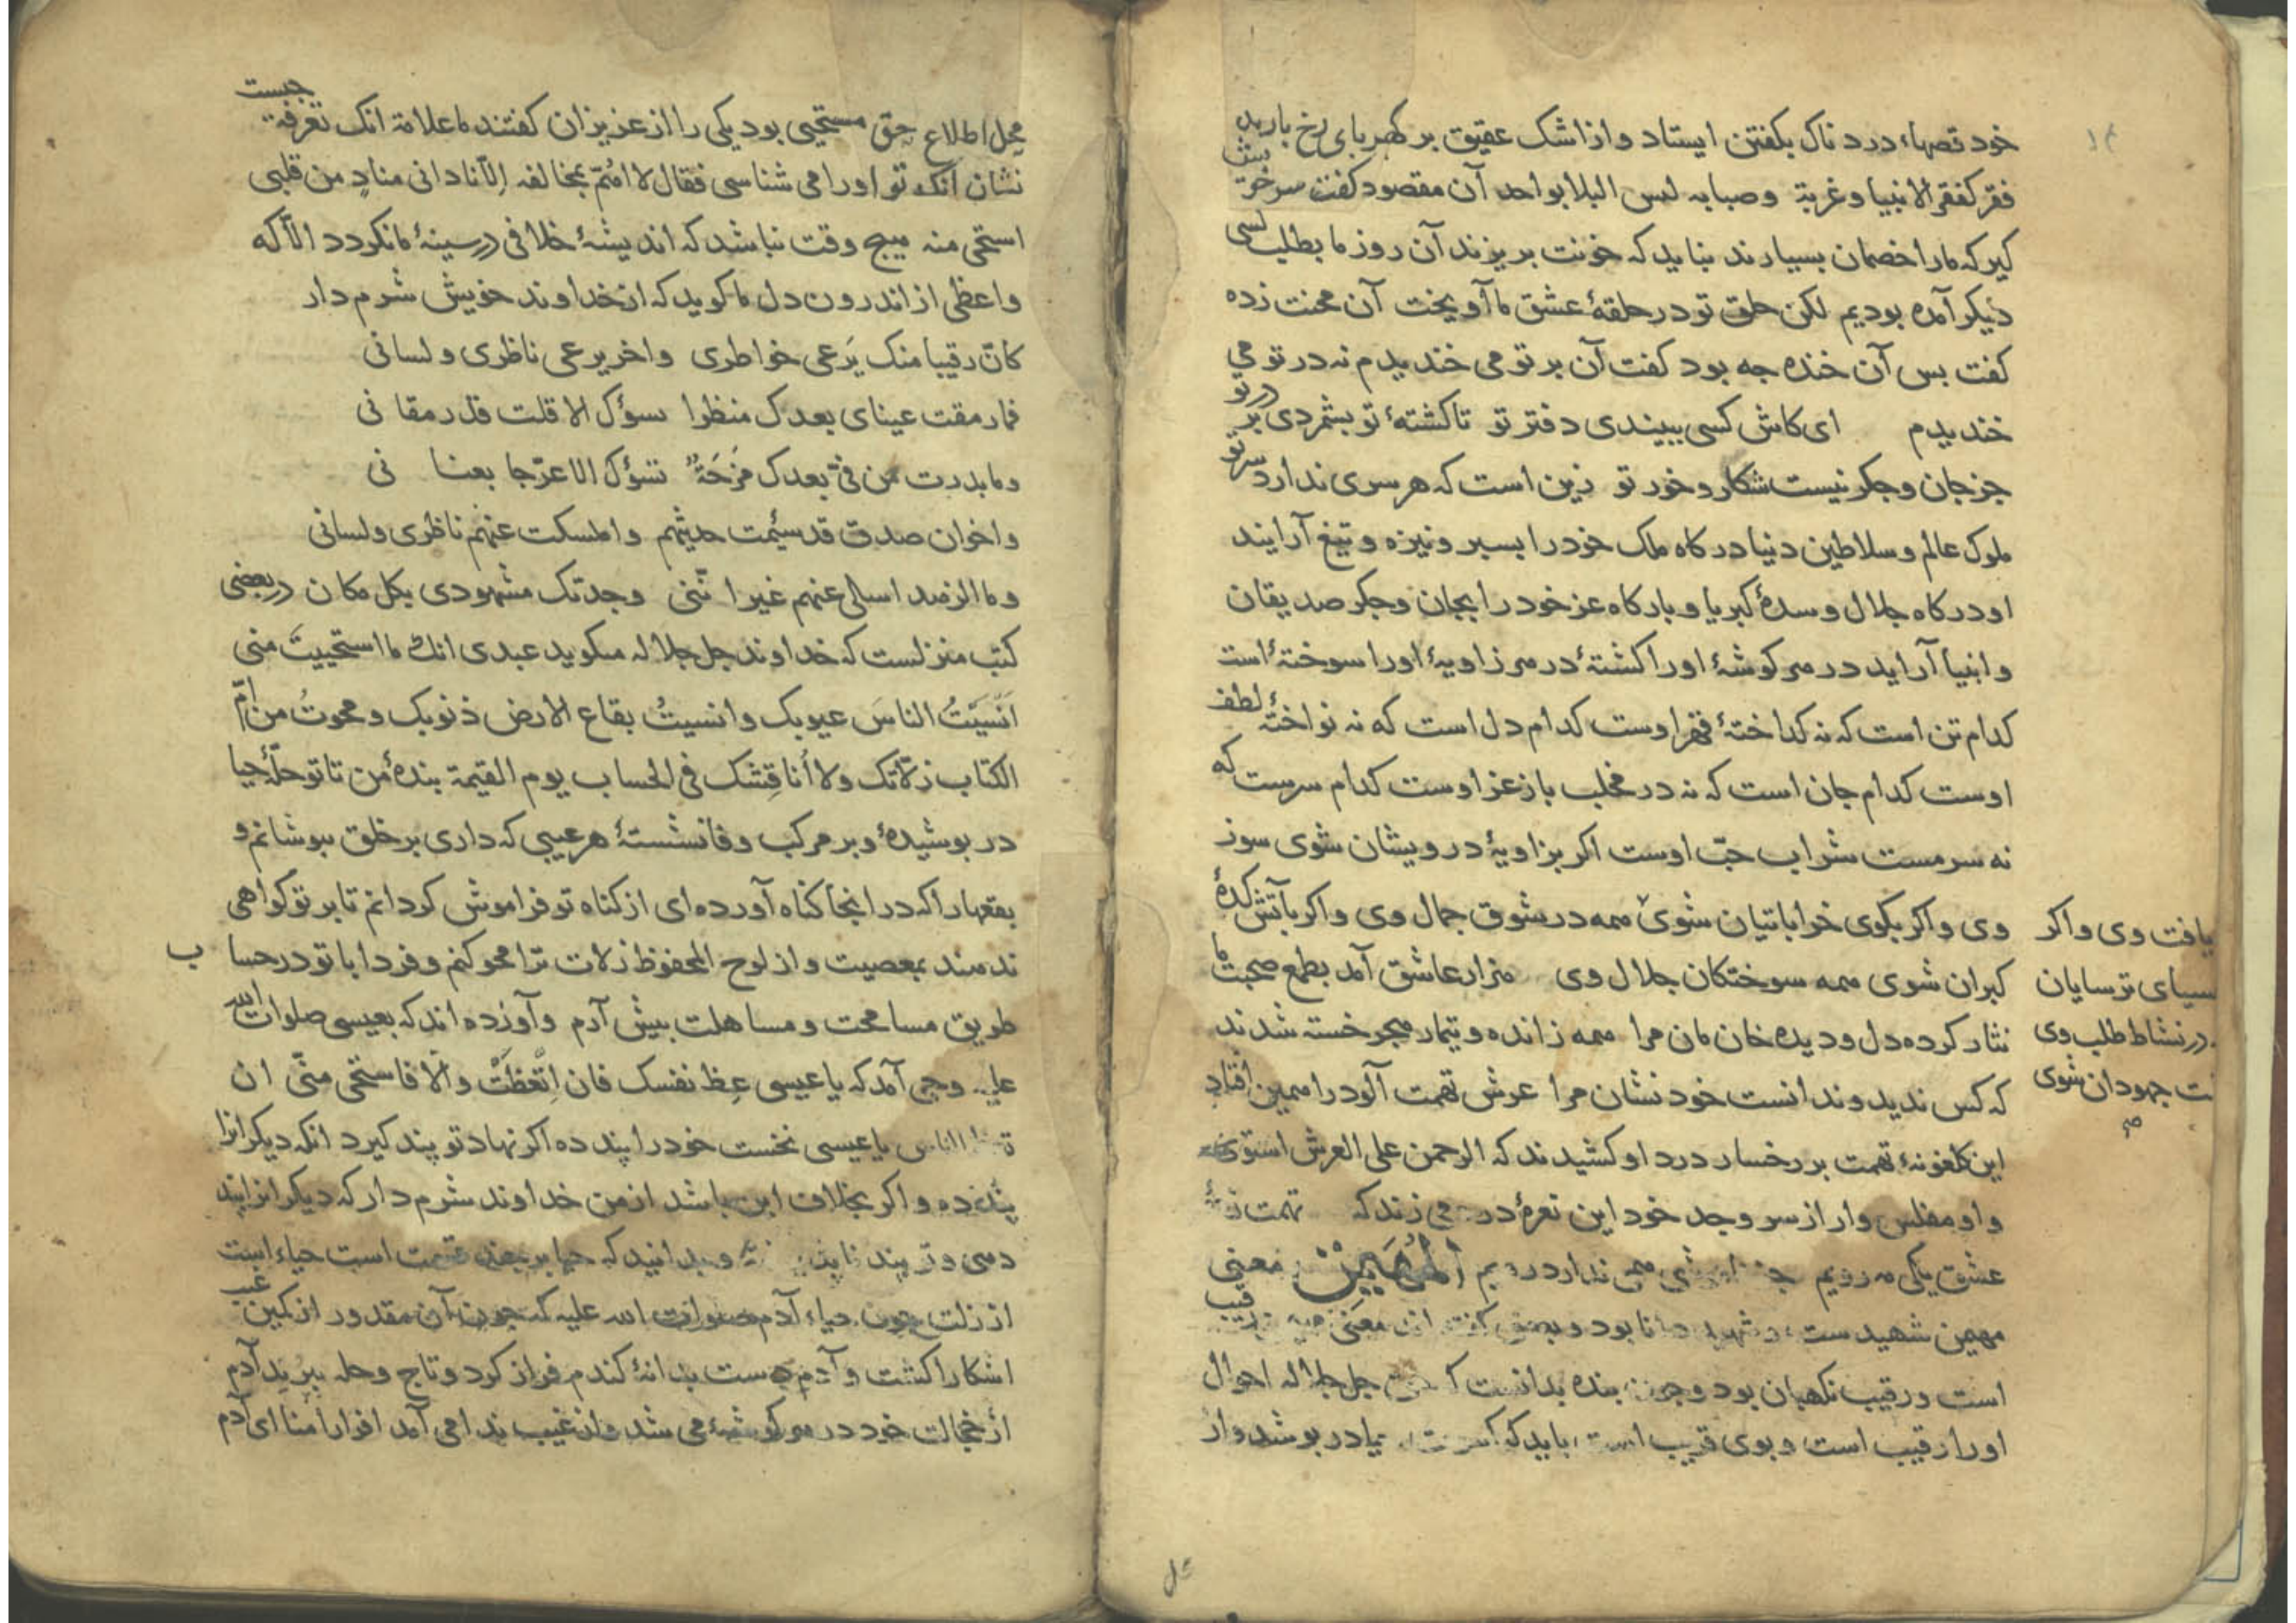 خود قصهاء درد ناک بکفتن ایستاد و از اشک عقیق بر کهربای رخ بارید
فقر کفقر الانبیا و غربة وصبابه لیس البلا بواحد آن مقصود کفت سر خویش
کیر که مارا خصمان بسیارند نباید که خونت بریزند آن روز ما بطلب کسی
دیکر آمده بودیم لکن حلق تو در حلقهٔ عشق ما آویخت آن محنت زده
کفت بس آن خنده جه بود کفت آن بر تو می خندیدم نه در تو می
خندیدم ای کاش کسی ببیندی دفتر تو تا کشتهٔ تو بشمردی بر در تو
جز جان و جکر نیست شکار و خور تو زین است که هر سری ندارد سر تو
ملوک عالم و سلاطین دنیا درکاه ملک خود را بسبر و نیزه و تیغ آرایند
او درکاه جلال و سدهٔ کبریا و بارکاه عز خود را بجان و جکر صدیقان
و انبیا آراید در هر کوشهٔ اورا کشتهٔ در هر زاویهٔ اورا سوختهٔ است
کدام تن است که نه کداختهٔ قهر اوست کدام دل است که نه نواختهٔ لطف
اوست کدام جان است که نه در مخلب باز عز اوست کدام سرست که
نه سرمست شراب حبّ اوست اکر بزاویهٔ درویشان شوی سوز
وی و اکر بکوی خراباتیان شوی همه در شوق جمال وی و اکر بآتش کدهٔ
یافت وی و اکر
کبران شوی همه سوختکان جلال وی هزار عاشق آمد بطمع صحبت ما
ترسایان
نثار کرده دل و دیده خان مان مرا همه ز انده و تیمار هجر خسته شدند
در نشاط طلب وی
که کس ندید و ندانست خود نشان مرا عرش تهمت آلود را همین افتاد
جهودان شوی
صح
این کلغونهٔ تهمت بر رخسار درد او کشیدند که الرحمن علی العرش استوی
و او مفلس وار از سر وجد خود این نعرهٔ درد می زند که تهمت زدهٔ
عشق یکی مه رویم ندارد رویم المُهَيمِنُ معنی
مهمن شهیدست و شهید دانا بود و بعضی کفته اند معنی رقیب
است و رقیب نکهبان بود و جون بنده بدانست که حق جل جلاله احوال
اورا رقیب است و بوی قریب است باید که در بوشد و از
محل اطلاع حق مستحیی بود یکی را از عزیزان کفتند ما علامة انک تعرفه جیست
نشان آنک تو اورا می شناسی فقال لا اهمّ بمخالفه الّا نادانی منادٍ من قلبی
استحی منه هیج وقت نباشد که اندیشهٔ خلافی در سینهٔ ما نکردد الّا که
واعظی از اندرون دل ما کوید که از خداوند خویش شرم دار
کانّ رقیبا منک یَرعی خواطری واخر یرعی ناظری و لسانی
فما رمقت عینای بعدک منظرا یسؤک الا قلت قد رمقانی
وما بدرت من فیّ بعدک مَزحَةٌ تسؤک الا عرّجا بعنانی
واخوان صدق قد سئمت حدیثهم وامسکت عنهم ناظری ولسانی
وما الزهد اسالی عنهم غیر انّنی وجدتک مشهودی بکل مکان در بعضی
کتب منزلست که خداوند جل جلاله میکوید عبدی انک ما استحییتَ منی
اَنسَیتُ الناسَ عیوبک وانسیتُ بقاع الارض ذنوبک ومحوتُ من امّ
الکتاب زلّاتک ولا أُناقِشک فی الحساب یوم القیمة بندهٔ من تا تو حلّهٔ حیا
در بوشیدهٔ و بر مرکب وفا نشستهٔ هر عیبی که داری بر خلق ببوشانم و
بقعهارا که در آنجا کناه آورده ای از کناه تو فراموش کردانم تا بر تو کواهی
ندهند بمعصیت و از لوح المحفوظ زلات ترا محو کنم و فردا با تو در حساب
طریق مسامحت و مساهلت بیش آرم و آورده اند که بعیسی صلوات الله
علیه وحی آمد که یا عیسی عِظ نفسک فان اِتَّعَظَتْ والّا فاستحی منّی ان
الناس یا عیسی نخست خودرا پند ده اکر نهاد تو پند کیرد انکه دیکرانرا
پند ده و اکر بخلاف این باشد از من خداوند شرم دار که دیکرانرا پند
دهی و تو پند و بدانید که حیا بر جند قسمت است حیاء است
از زلت جون حیاء آدم صلوات الله علیه که جون آن مقدور از کمین غیب
اشکارا کشت و آدم دست بدانهٔ کندم فراز کرد و تاج و حله ببرید آدم
از خجالت خود در هر کوشهٔ می شد و از غیب ندا می آمد افرارا منا ای آدم